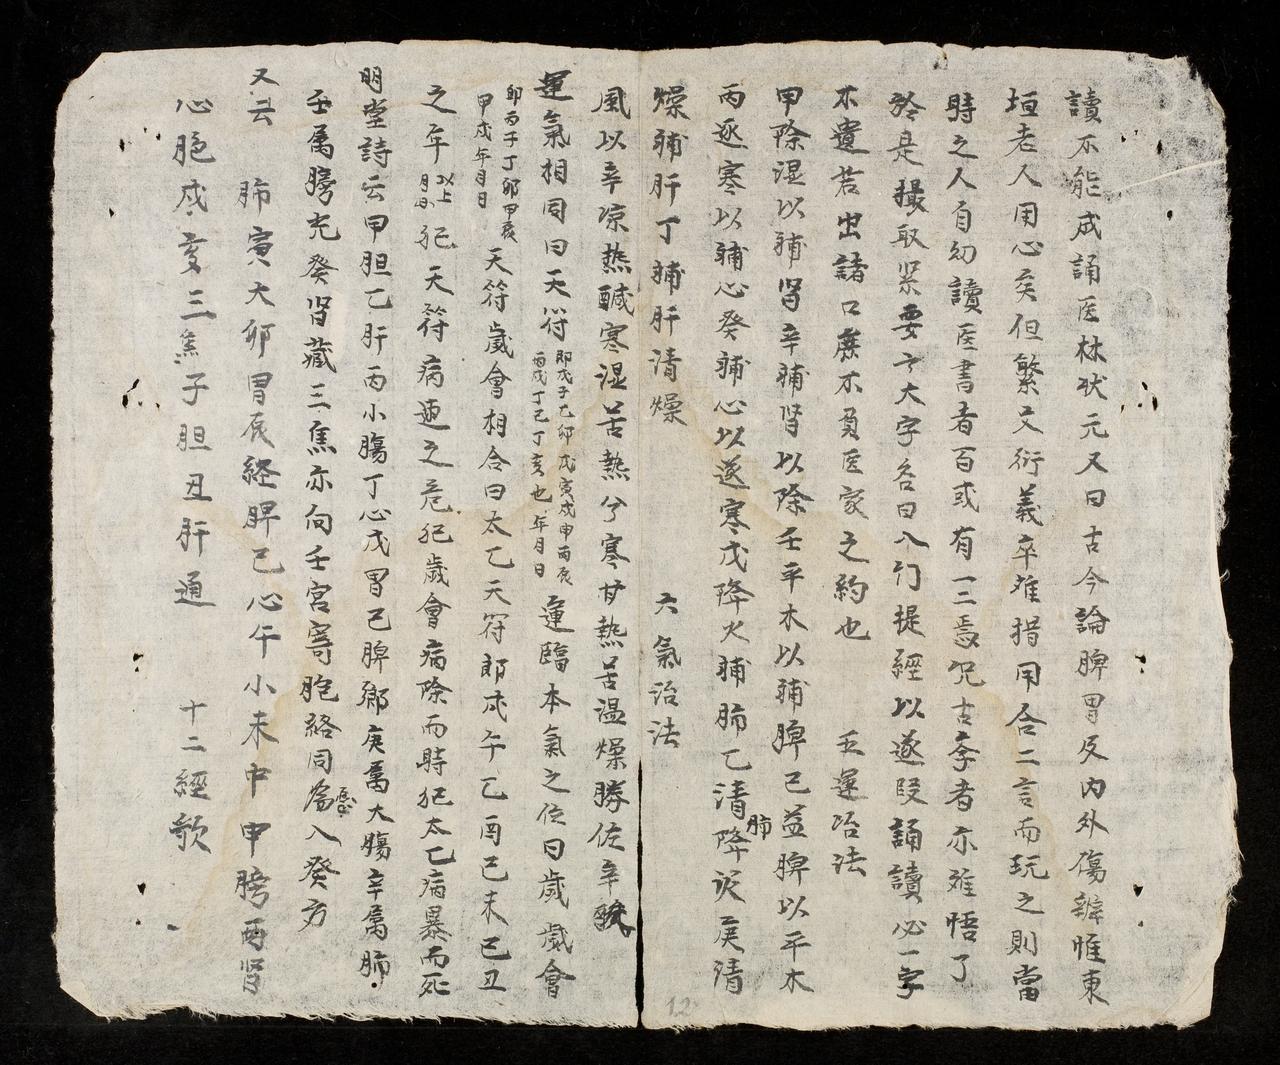 讀不能成誦医林状元又曰古今論脾胃及内外傷辨惟東
垣老人用心矣但繁文衍義卒难措用合二言而玩之則當
時之人自幼讀医書者百或有一二焉况古李者亦难悟了
於是撮取紧要之大字名曰入门提經以遂段誦讀必一字
不遺若出諸口庶不負医家之約也 五運治法
甲除湿以補肾辛補肾以除壬平木以補脾己益脾以平木
丙逐寒以補心癸補心以逐寒戊降火補肺乙清肺降炎庚清
燥補肝丁補肝清燥 六氣治法
風以辛凉熱鹹寒湿苦熱兮寒甘熱苦温燥勝佐辛酸
運氣相同曰天符 即戊子乙卯戊寅戊申丙辰丙戌丁巳丁亥也年月日 運臨本氣之位曰歲會
卯丙子丁卯甲辰甲戌年月日 天符歲會相合曰太乙天符即戊午乙酉己未己丑
之年 以上月日 犯天符病速之危犯歲會病除而時犯太乙病暴而死
明堂詩云甲胆乙肝丙小腸丁心戊胃己脾鄉庚属大腸辛属肺
壬属膀光癸肾藏三焦亦向壬宮寄胞絡同為入癸方
又云 肺寅大卯胃辰経脾巳心午小未中申膀酉肾
心胞戌亥三焦子胆丑肝通 十二經歌
12